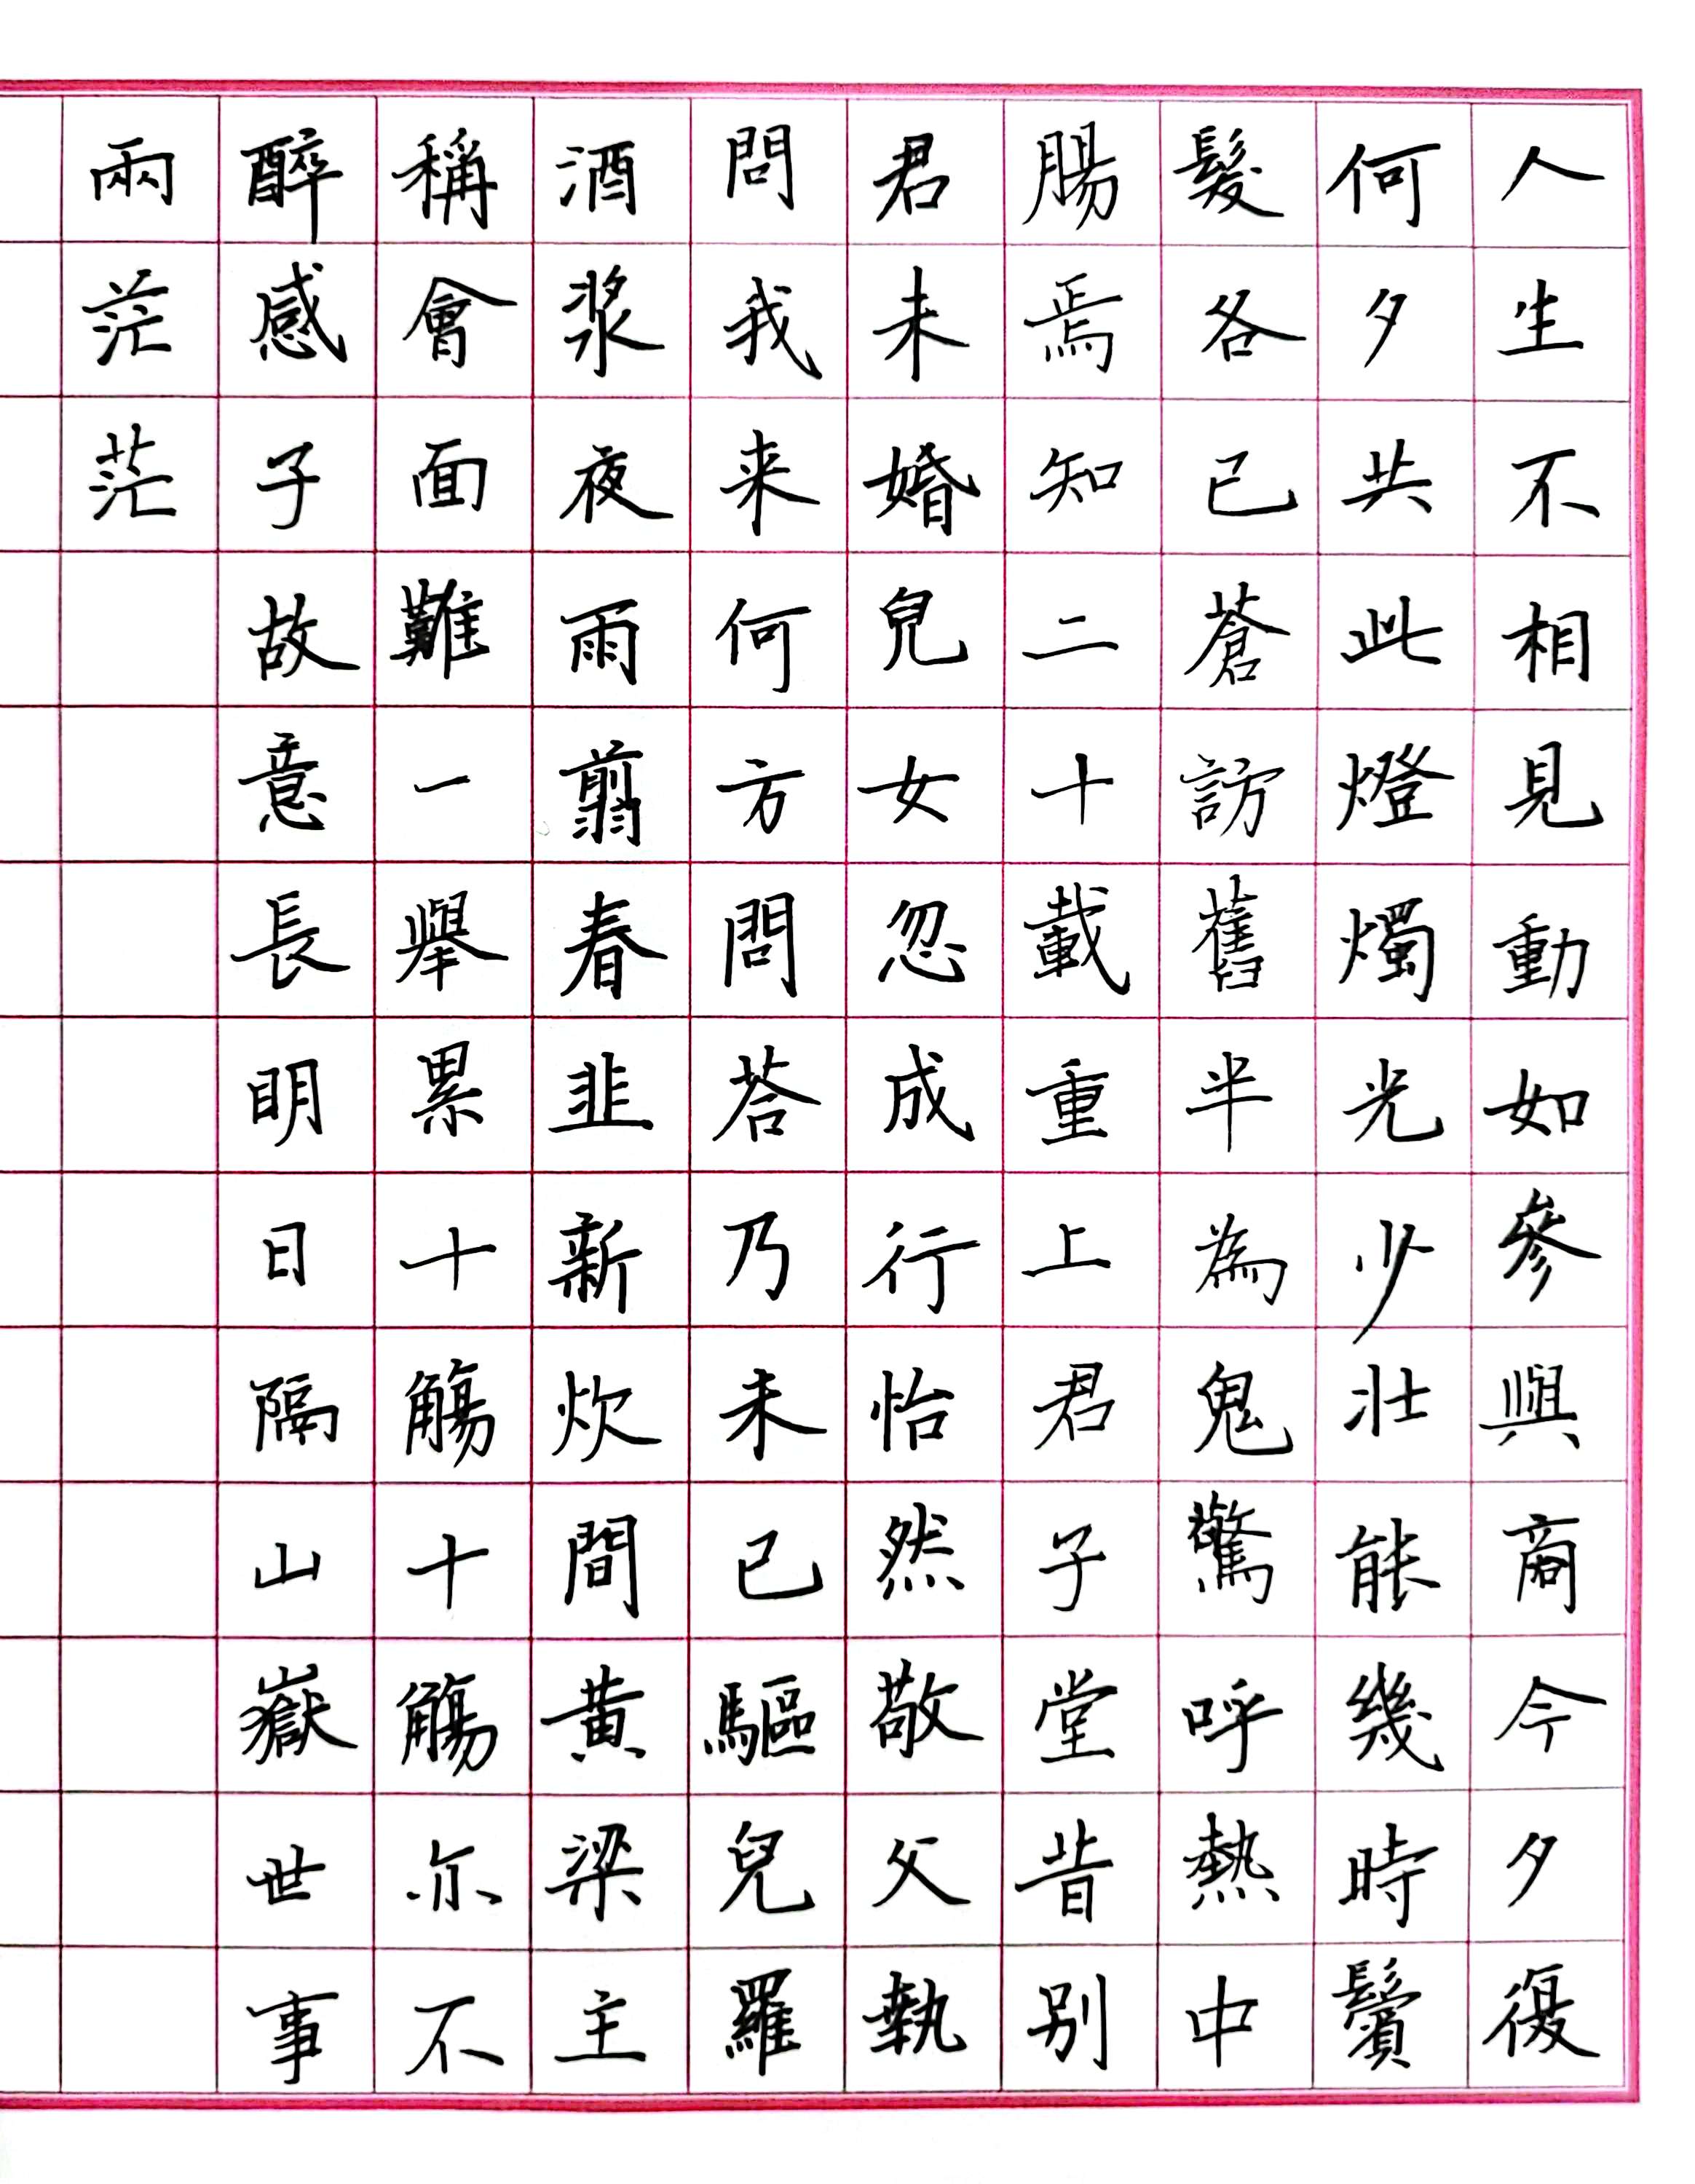 人生不相見動如參與商今夕復
何夕共此燈燭光少壯能幾時鬢
髮各已蒼訪舊半為鬼驚呼熱中
腸焉知二十載重上君子堂昔别
君未婚兒女忽成行怡然敬父執
問我来何方問荅乃未已驅兒羅
酒漿夜雨翦春韭新炊間黄梁主
稱會面難一舉累十觴十觴亦不
醉感子故意長明日隔山嶽世事
兩茫茫